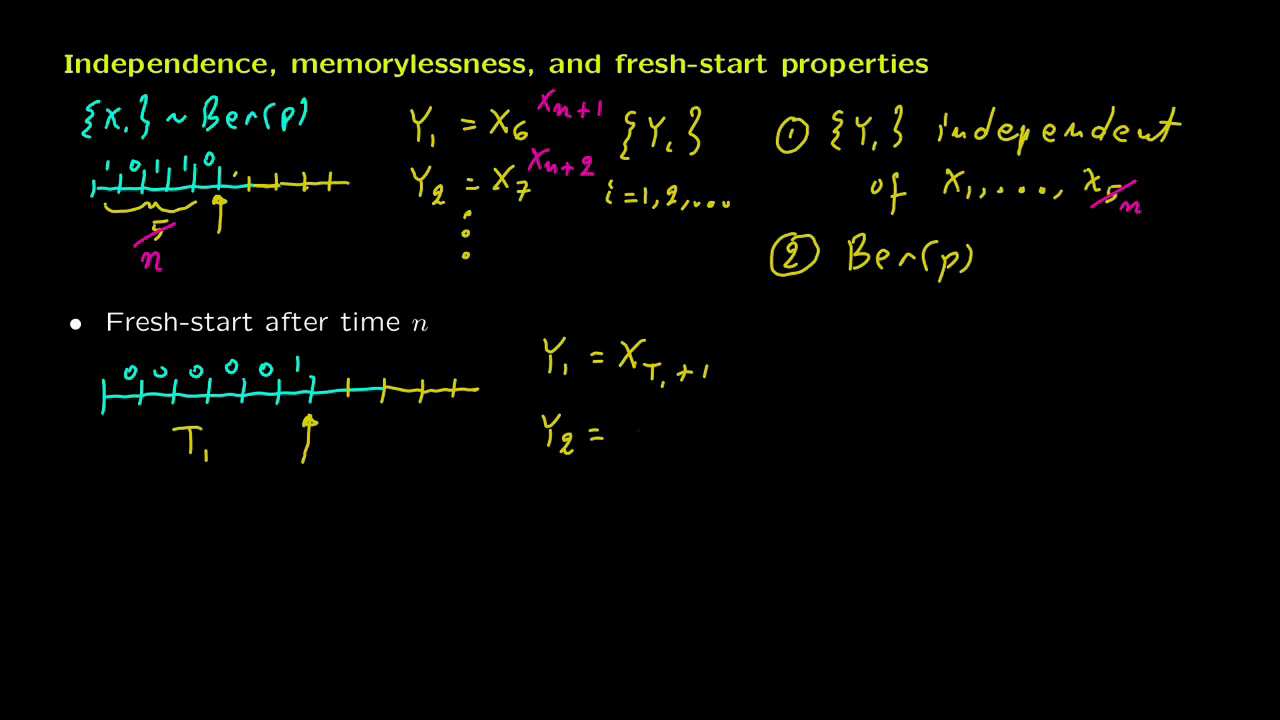 Independence, memorylessness, and fresh-start properties
{X_i} ~ Ber(p)
1 0 1 1 0
5 n
Y_1 = X_6 X_{n+1}
Y_2 = X_7 X_{n+2}
{Y_i}
i = 1, 2, ...
① {Y_i} independent
of X_1, ..., X_5 n
② Ber(p)
• Fresh-start after time n
0 0 0 0 0 1
T_1
Y_1 = X_{T_1 + 1}
Y_2 =